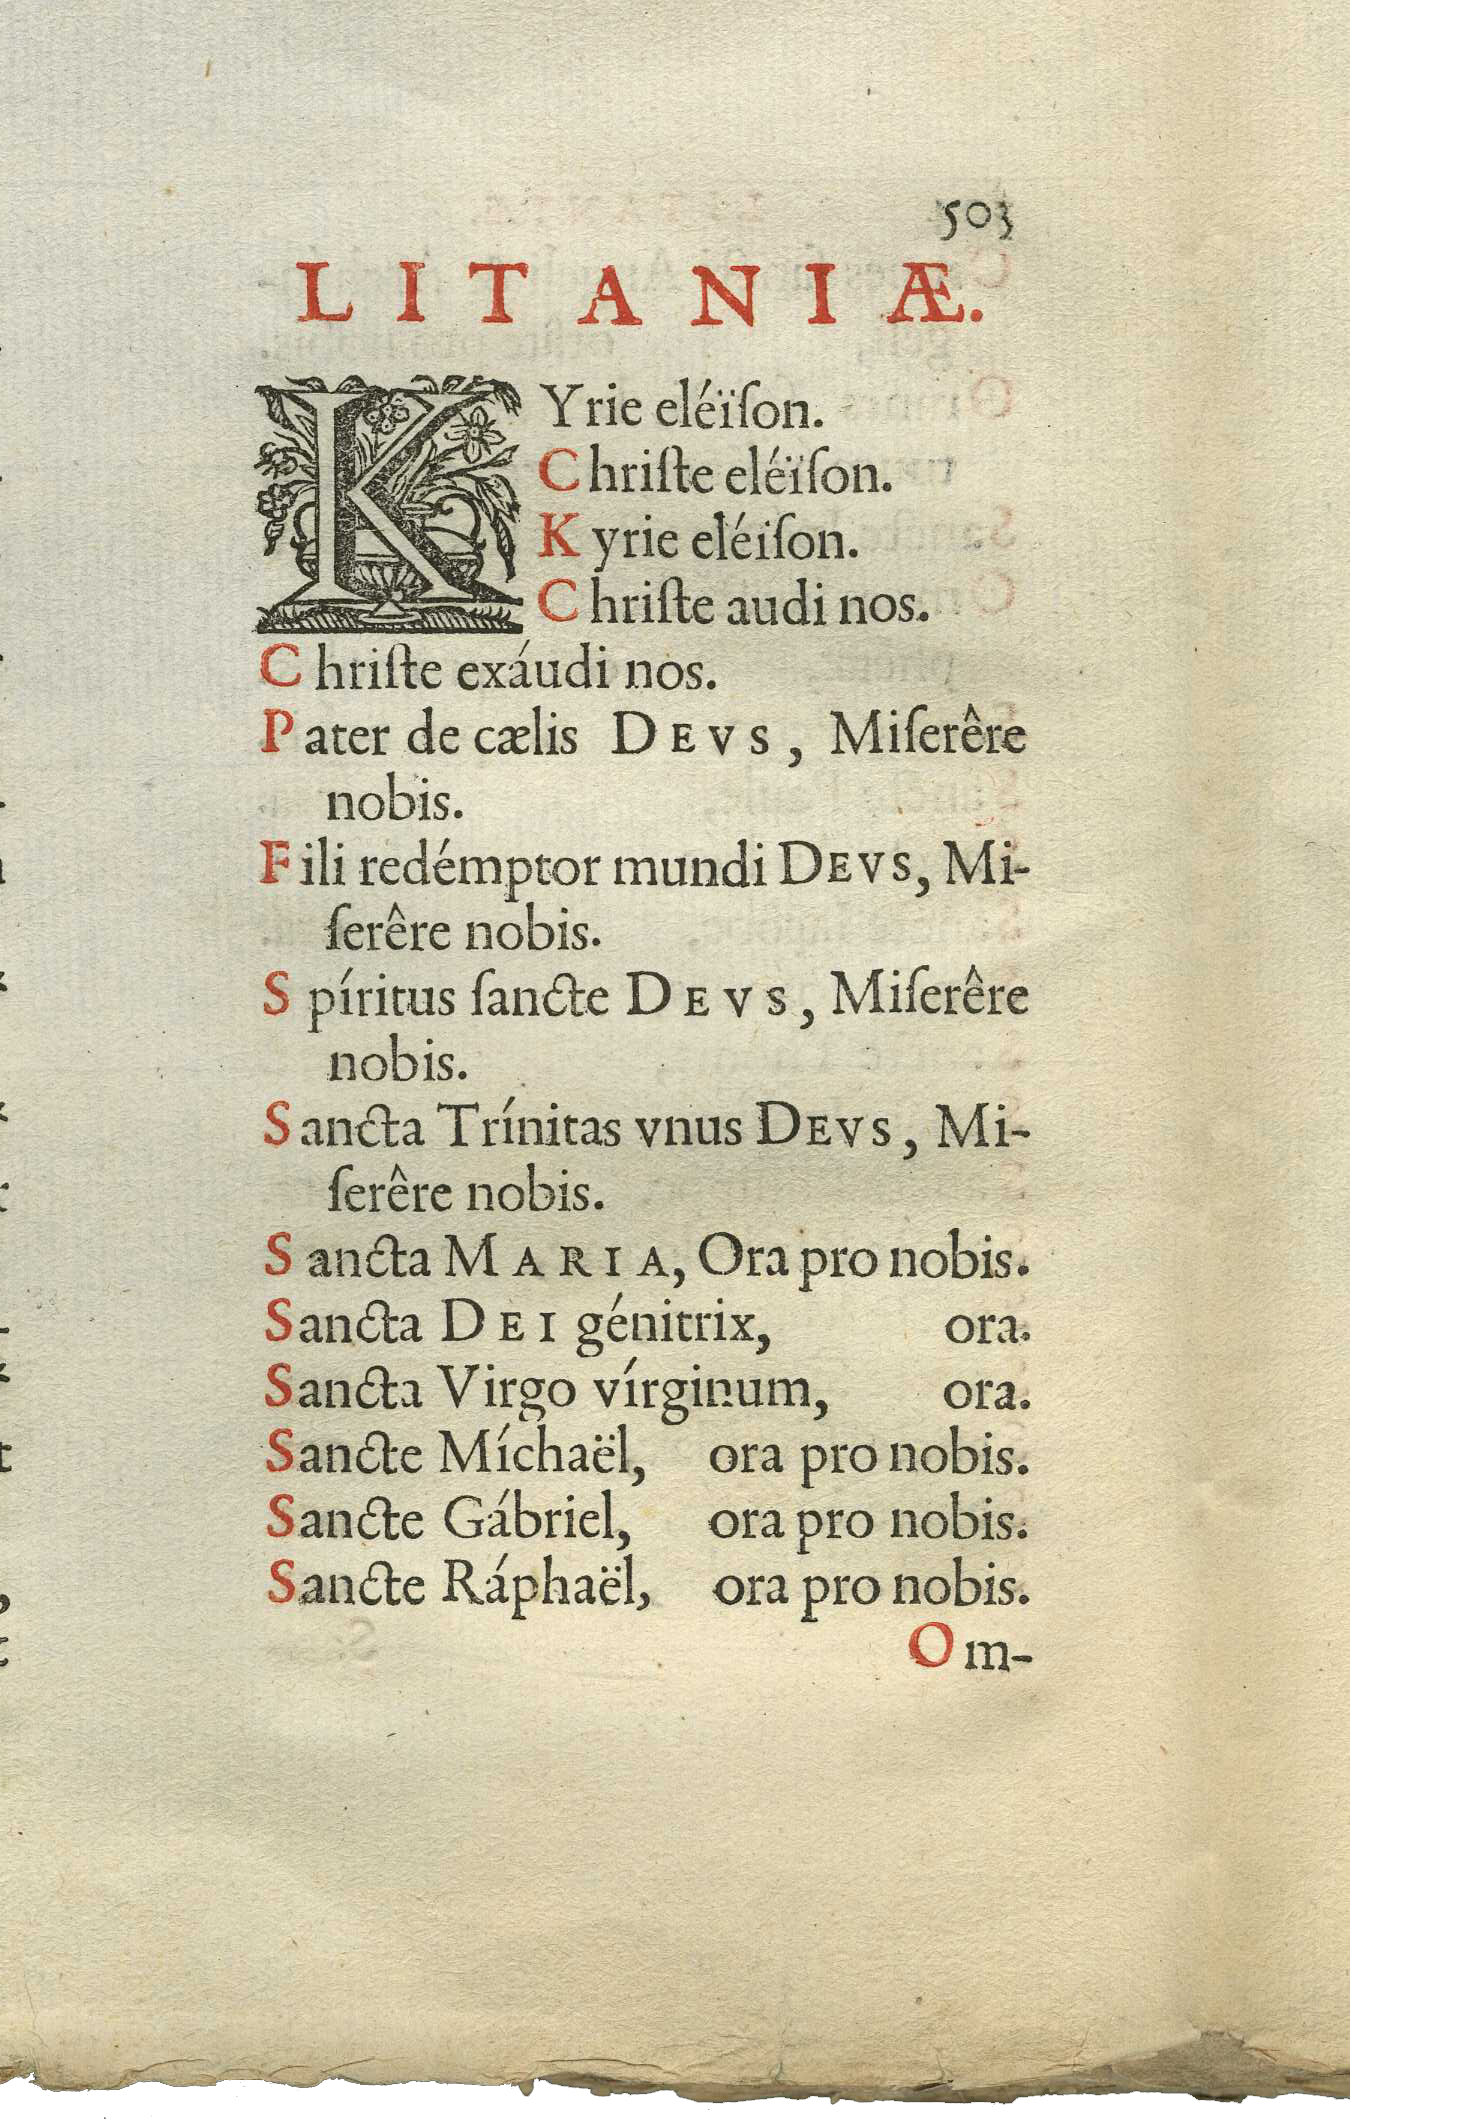 503
LITANIÆ.
KYrie eléïſon.
Chriſte eléïſon.
Kyrie eléiſon.
Chriſte audi nos.
Chriſte exáudi nos.
Pater de cælis DEVS, Miſerêre
nobis.
Fili redémptor mundi DEVS, Mi-
ſerêre nobis.
Spíritus ſancte DEVS, Miſerêre
nobis.
Sancta Trínitas vnus DEVS, Mi-
ſerêre nobis.
Sancta MARIA, Ora pro nobis.
Sancta DEI génitrix, ora.
Sancta Virgo vírginum, ora.
Sancte Míchaël, ora pro nobis.
Sancte Gábriel, ora pro nobis.
Sancte Ráphaël, ora pro nobis.
Om-